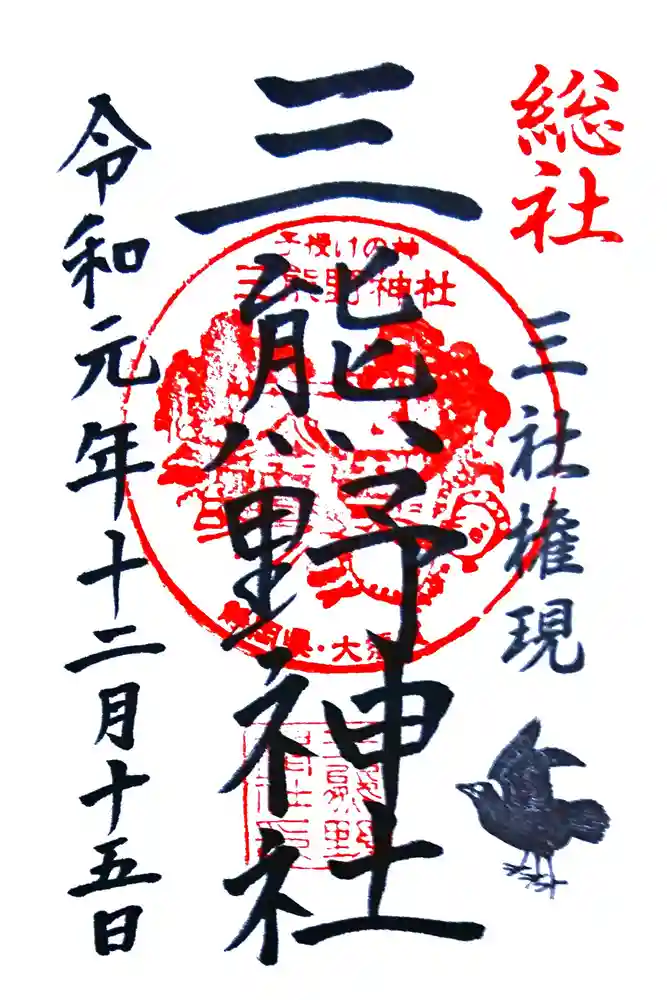 総社
三社権現
三熊野神社
令和元年十二月十五日
子授けの神
三熊野神社
静岡県・大須賀